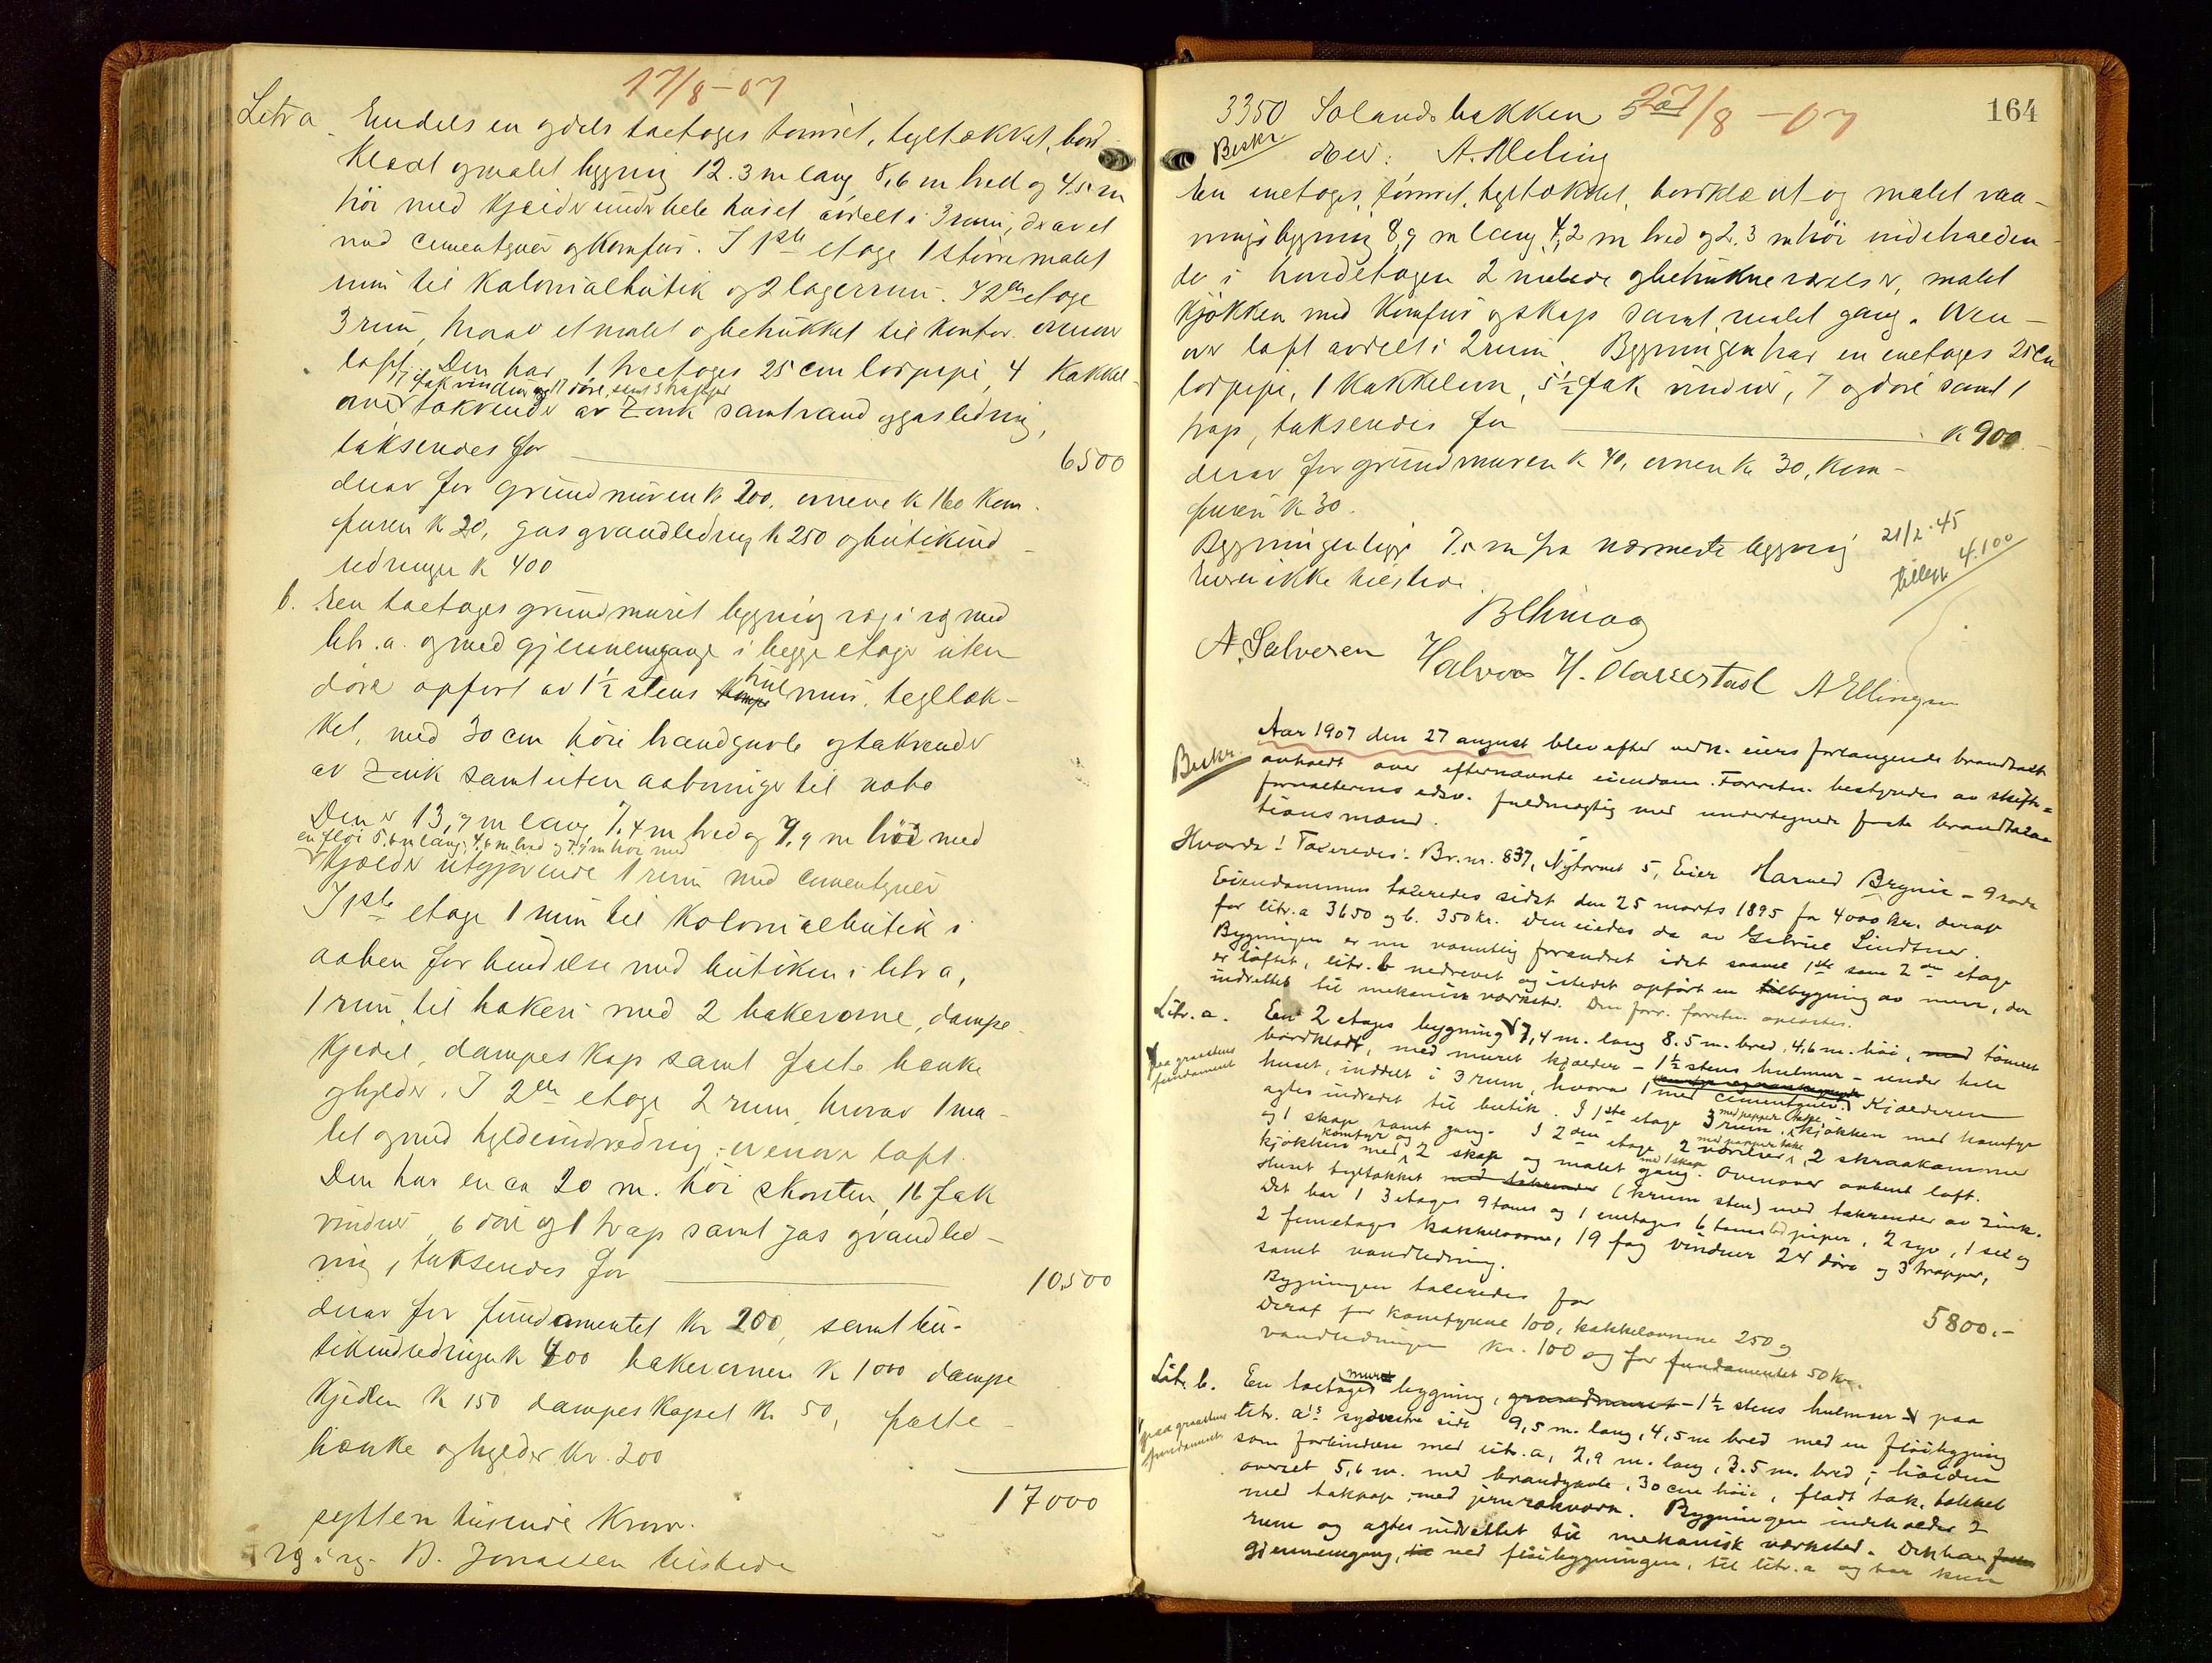 17/8-07
Litr a. Endels en og dels toetages tømret, tegltækket, bord-
klædt og malet bygning 12.3 m lang 8,6 m bred og 4.5 m
høi med kjelder under hele huset avdelt i 3 rum, derav et
med cementgulv og komfur. I 1ste etage 1 større malet
rum til kolonialbutik og 2 lagerrum. I 2den etage
3 rum, hvorav et malet og betrukket til kontor. ovenover
loft. Den har 1 treetages 25 cm lodpipe, 4 kakkel-
17 fak vinduer og 17 døre, samt 3 trapper
ovner takrender av zink samt vand og gasledning,
taksendes for 6500
derav for grundmuren kr 200, ovnene k 160 kom-
furen k 20, gas og vandledning k 250 og butikind-
redninger k 400
b. Een toetages grundmuret bygning ryg i ryg med
litr. a. og med gjennemgange i begge etager uten
døre opført av 1½ stens hul mur, tegltæk-
ket, med 30 cm høie brandgavle og takrender
av zink samt uten aabninger til nabo
Den er 13,9 m lang, 7.4 m bred og 7,9 m høi med
en fløi 5.6 m lang, 4,6 m bred og 7.9 m høi med
kjelder utgjørende 1 rum med cementgulv
I 1ste etage 1 rum til kolonialbutik i
aaben forbindelse med butiken i litr a,
1 rum til bakeri med 2 bakerovne, dampe-
kjedel, dampeskap samt faste bænke
og hylder. I 2den etage 2 rum, hvorav 1 ma-
let og med hyldeindredning; ovenover loft.
Den har en ca 20 m. høi skorsten, 16 fak
vinduer, 6 døre og 1 trap samt gas og vandled-
ning, taksendes for 10.500
derav for fundamentet kr 200, samt bu-
tikindredningen k 400 bakerovnen k 1000 dampe
kjedlen k 150 dampeskapet kr. 50, faste
bænke og hylder kr. 200
17000
sytten tusende kroner.
B. Jonassen tilstede
164
3350 Solandsbakken 5 a 27/8 -07
Beskr. Eier: A. Meling
En enetages, tømret, tegltækket, bordklædt og malet vaa-
ningsbygning 8,9 m lang 4,2 m bred og 2.3 m høi indeholden-
de i hovedetagen 2 malede og betrukne værelser, malet
kjøkken med komfur og skap samt malet gang. Oven-
over loft avdelt i 2 rum. Bygningen har en enetages 25 cm
lodpipe, 1 kakkelovn, 5½ fak vinduer, 7 døre samt 1
trap, taksendes for k 900.
derav for grundmuren k 40, ovnen kr 30, kom-
furen k 30.
Bygningen ligger 7.5 m fra nærmeste bygning
Eieren ikke tilstede.
21/2-45
tillegg 4.100
A. Salvesen Halvor H. A Ellingsen
Beskr. Aar 1907 den 27 august blev efter vedk. eiers forlangende brandtakst
avholdt over efternævnte eiendom. Forretn. bestyredes av skifte-
forvalterens edsv. fuldmægtig med undertegnede faste brandtaxa-
tionsmænd.
Hvorda! Taxeredes: Br.nr. 837, Nytorvet 5, Eier Harved Brynie - 9 rode
Eiendommen taxeredes sidst den 25 marts 1895 for 4000 kr. deraf
for litr. a 3650 og b. 350 kr. Den eiedes da av Gabriel Lindtner.
Bygningen er nu væsentlig forandret idet saavel 1ste som 2den etage
er løftet, litr. b nedrevet og istedet opført en tilbygning av mur, der
indrettes til mekanisk værksted. Den forr. forretn. oplæstes.
Litr. a. En 2 etages bygning 7,4 m. lang 8.5 m. bred, 4,6 m. høi, med tømret
paa graastens fundament
bordklædt, med muret kjælder - 1½ stens hulmur - under hele
huset, inddelt i 3 rum, hvorav 1 med cementgulv. Kjælderen
agtes indredet til butik. I 1ste etage 3 rum, kjøkken med komfyr
og 1 skap samt gang. I 2den etage 2 værelser, 2 skraakammer
kjøkken med komfyr og 2 skap og malet gang med 1 skap. Ovenover aabent loft.
Huset tegltækket med takrender (krum sten) med takrender av zink.
Det har 1 3 etages 9 toms og 1 enetages 6 toms lodpiper, 2 ryo, 1 sel og
2 femetages kakkelovne, 19 fag vinduer 24 døre og 3 trapper,
samt vandledning.
Bygningen taxeredes for 5800.-
Deraf for komfyrene 100, kakkelovnene 250 og
vandledningen kr. 100 og for fundamentet 50 kr.
Litr. b. En toetages muret bygning, grundmuret - 1½ stens hulmur - paa
paa graastens fundament
litr. a's sydvestre side 9,5 m. lang, 4,5 m bred med en fløibygning
som forbindelse med litr. a, 2,9 m. lang, 3.5 m. bred; høiden
overalt 5,6 m. med brandgavle, 30 cm høie, fladt tak, tækket
med takpap, med jernrækværk. Bygningen indeholder 2
rum og agtes indrettet til mekanisk værksted. Den har
gjennemgang, ved fløibygningen, til litr. a og har kun